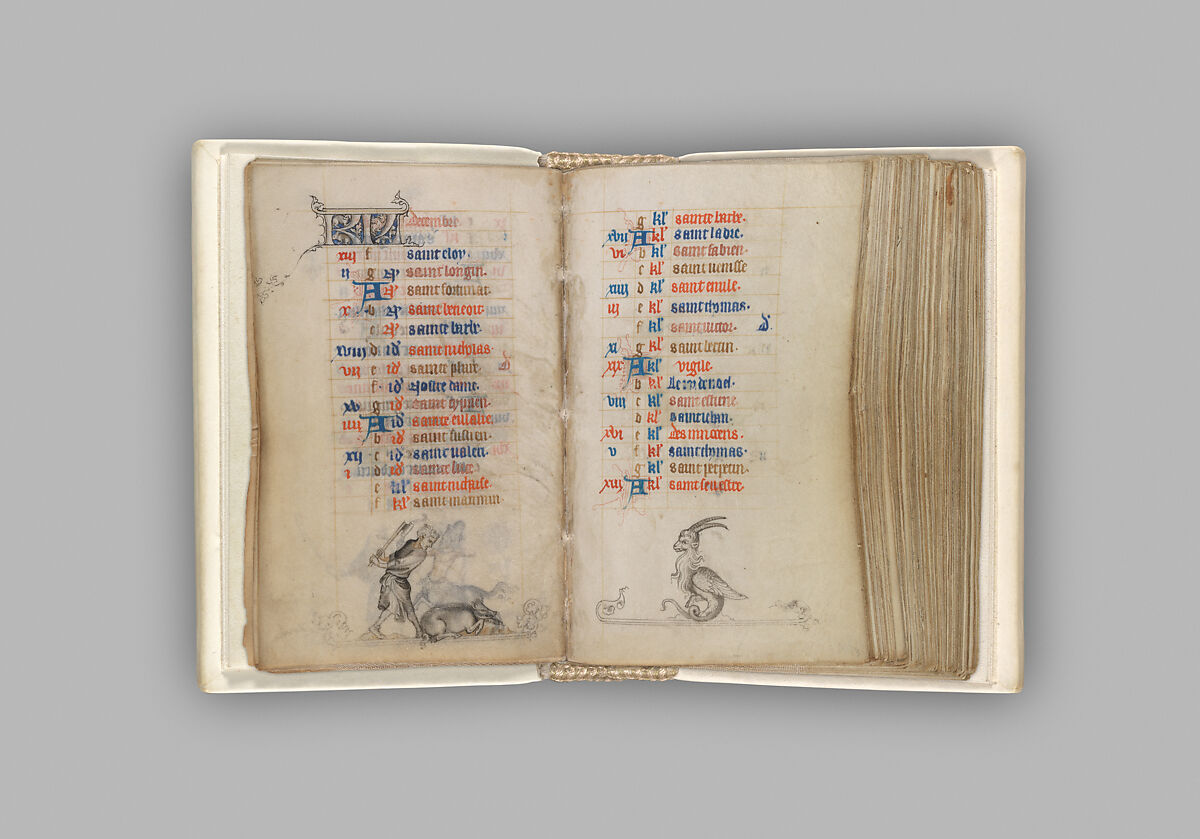 KL decembre.
xiii f saint eloy.
ii g saint longin.
A saint fortunat.
x b saint benoit.
c sainte barbe.
xviii d id saint nicholas
vii e id sainte
f id nostre dame.
xv g id saint
iiii A id sainte eulalie.
b id saint fuscien.
xii c id saint valeri.
i d id sainte luce
e kl saint nichaise.
f kl saint maximin
g kl sainte barbe.
xvii A kl saint ladre.
vi b kl saint fabien.
c kl saint venisse
xiiii d kl saint emile.
iii e kl saint thymas.
f kl saint victor.
xi g kl saint
xix A kl vigile.
b kl Le ior de noel.
viii c kl saint estiene.
d kl saint iehan.
xvi e kl des innocens.
v f kl saint thymas.
g kl saint perpetin.
xiii A kl saint seuestre.